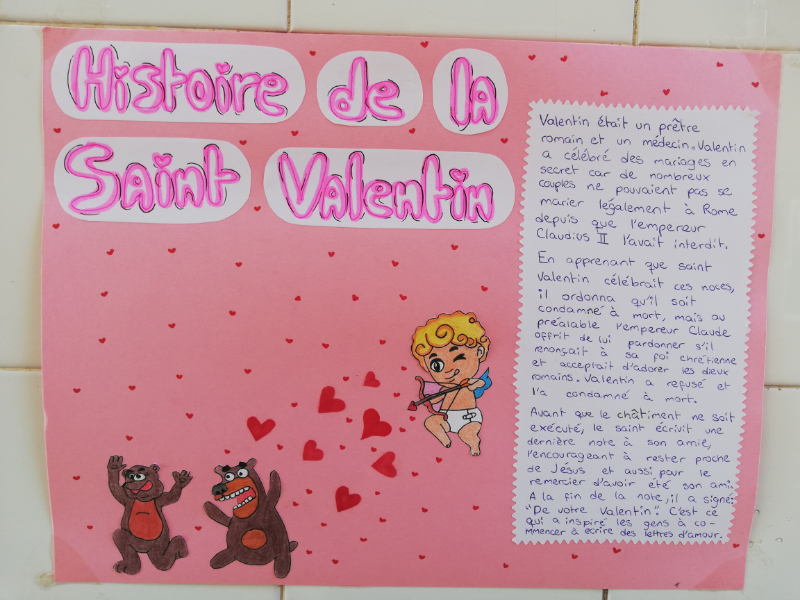 Histoire de la
Saint Valentin
Valentin était un prêtre
romain et un médecin. Valentin
a célébré des mariages en
secret car de nombreux
couples ne pouvaient pas se
marier légalement à Rome
depuis que l'empereur
Claudius II l'avait interdit.
En apprenant que saint
Valentin célébrait ces noces,
il ordonna qu'il soit
condamné à mort, mais au
préalable l'empereur Claude
offrit de lui pardonner s'il
renonçait à sa foi chrétienne
et acceptait d'adorer les dieux
romains. Valentin a refusé et
l'a condamné à mort.
Avant que le châtiment ne soit
exécuté, le saint écrivit une
dernière note à son amie,
l'encourageant à rester proche
de Jésus et aussi pour le
remercier d'avoir été son ami.
A la fin de la note, il a signé:
"De votre Valentin". C'est ce
qui a inspiré les gens à co-
mmencer à écrire des lettres d'amour.